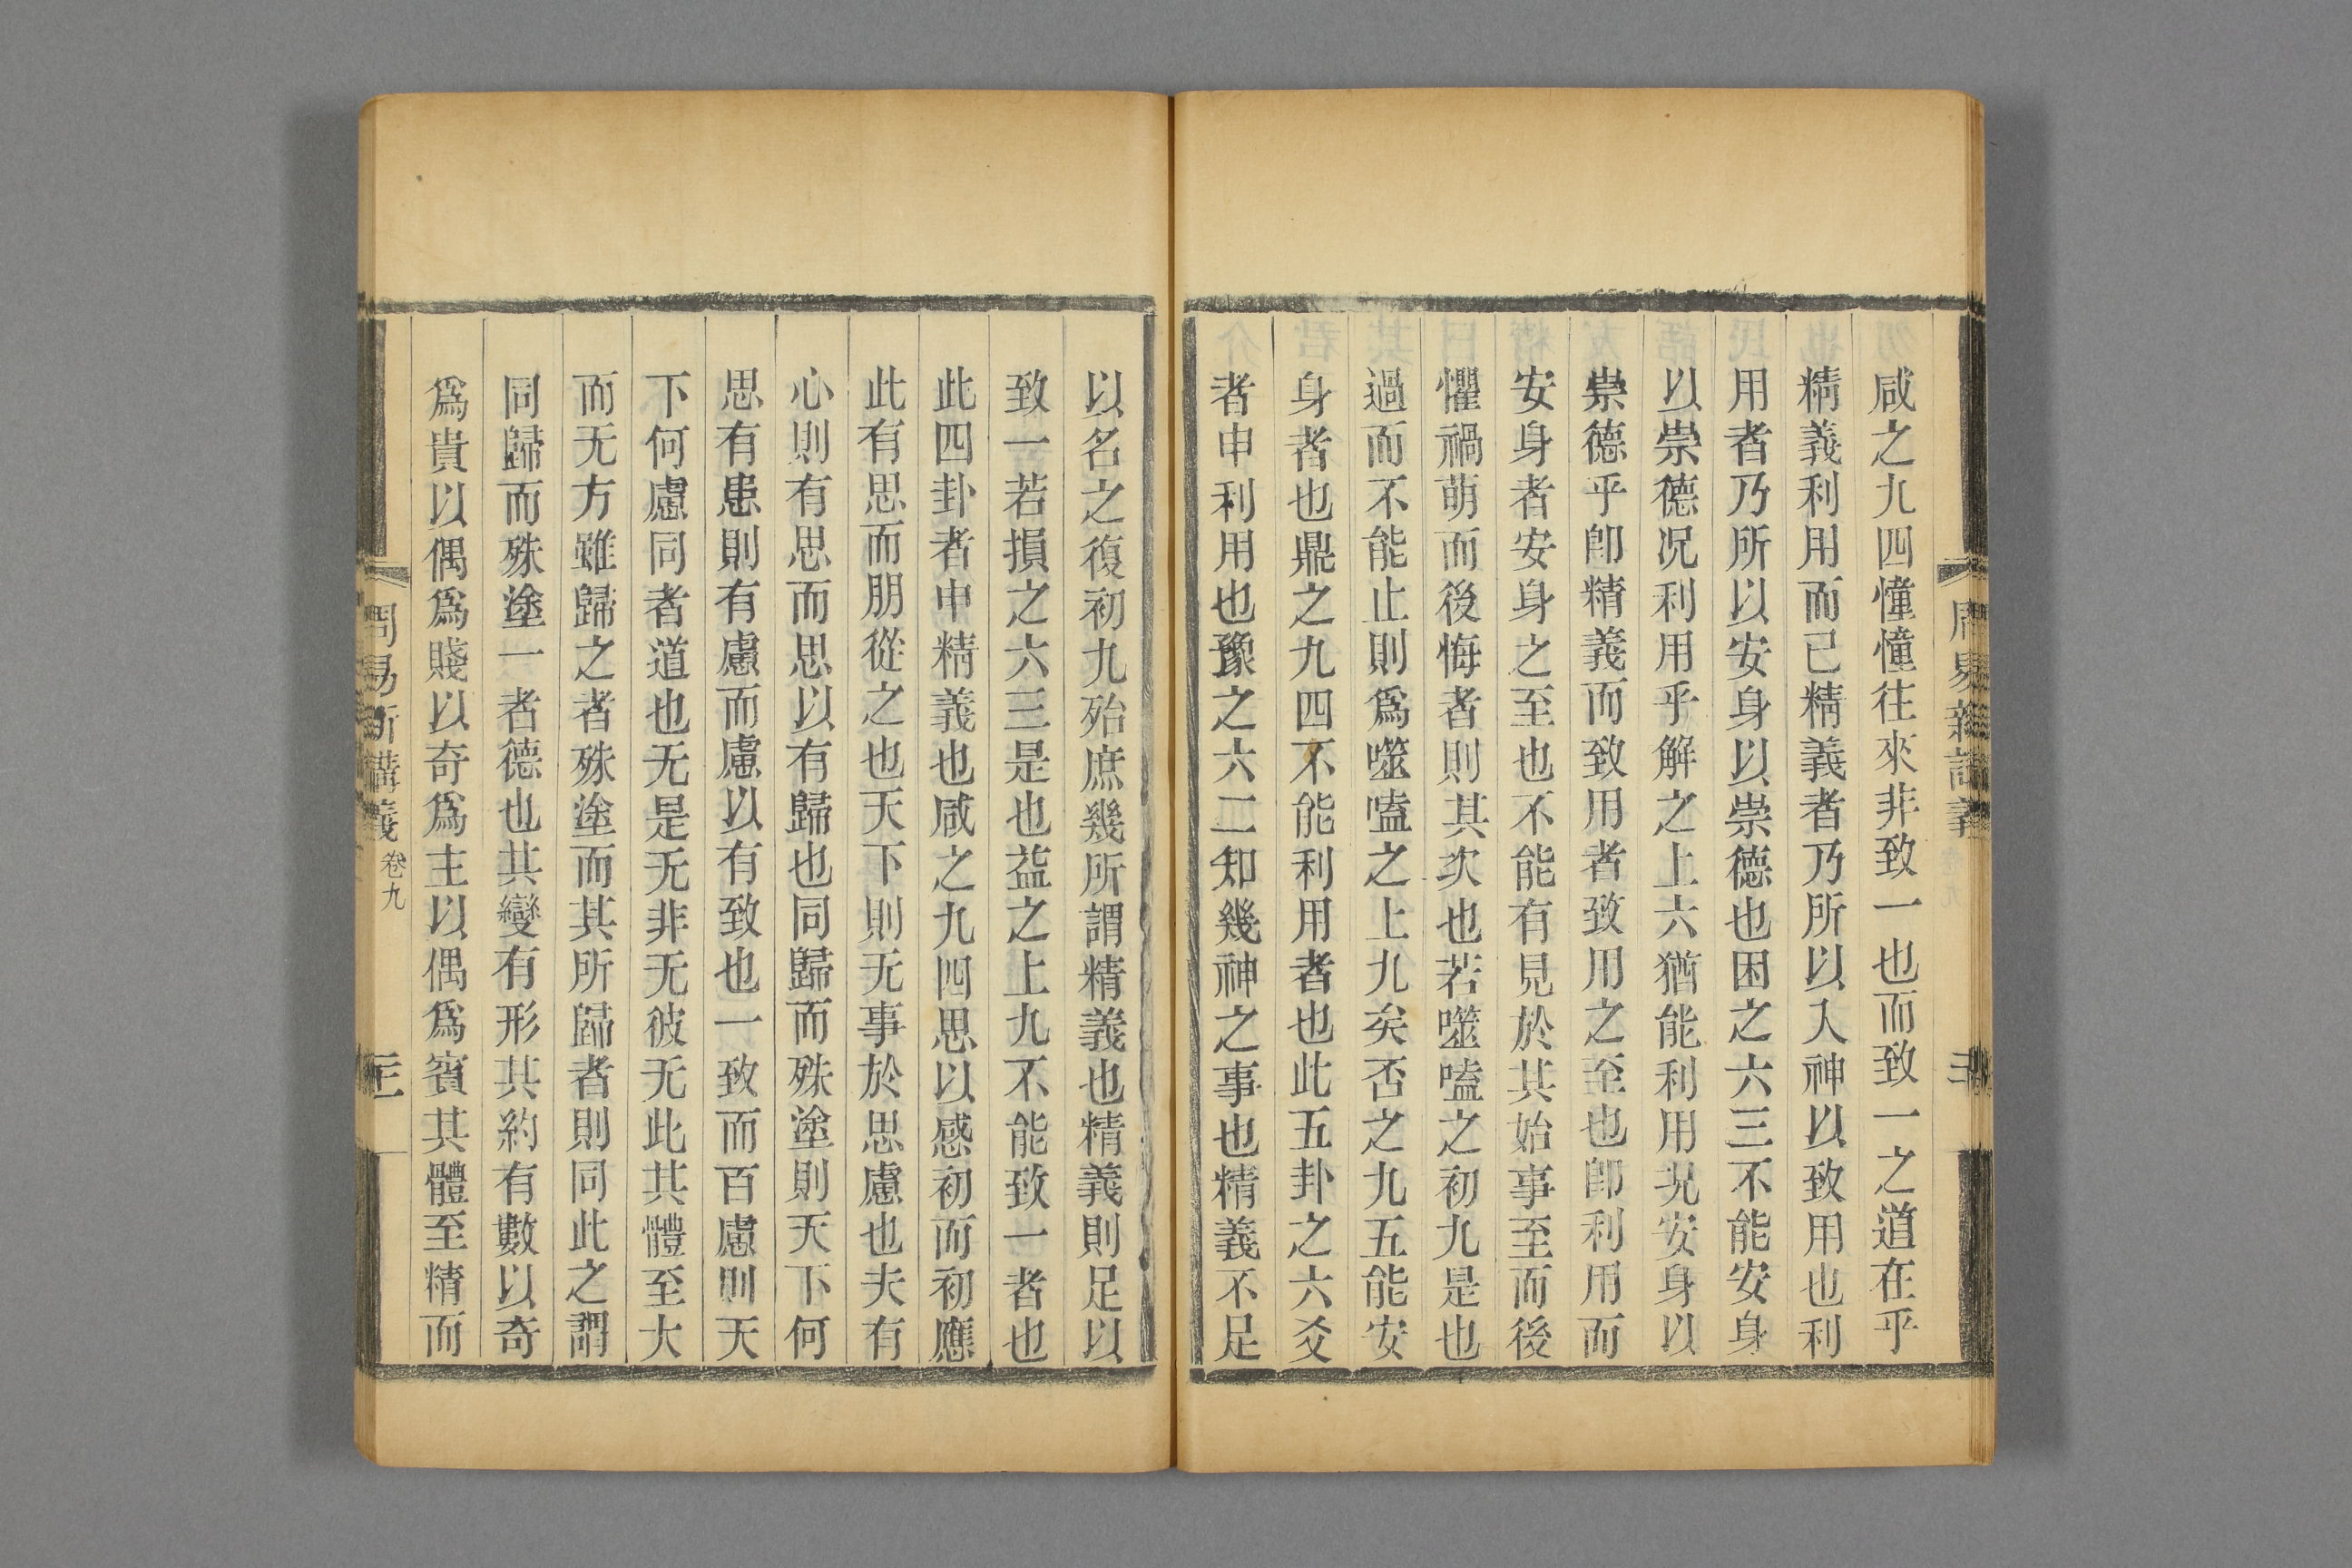 咸之九四憧憧往來非致一也而致一之道在乎
精義利用而已精義者乃所以入神以致用也利
用者乃所以安身以崇德也困之六三不能安身
以崇德況利用乎解之上六猶能利用況安身以
崇德乎卽精義而致用者致用之至也卽利用而
安身者安身之至也不能有見於其始事至而後
懼禍萌而後悔者則其次也若噬嗑之初九是也
過而不能止則爲噬嗑之上九矣否之九五能安
身者也鼎之九四不能利用者也此五卦之六爻
者申利用也豫之六二知幾神之事也精義不足
以名之復初九殆庶幾所謂精義也精義則足以
致一若損之六三是也益之上九不能致一者也
此四卦者申精義也咸之九四思以感初而初應
此有思而朋從之也天下則无事於思慮也夫有
心則有思而思以有歸也同歸而殊塗則天下何
思有患則有慮而慮以有致也一致而百慮則天
下何慮同者道也无是无非无彼无此其體至大
而无方雖歸之者殊塗而其所歸者則同此之謂
同歸而殊塗一者德也其變有形其約有數以奇
爲貴以偶爲賤以奇爲主以偶爲賓其體至精而
周易新講義 卷九